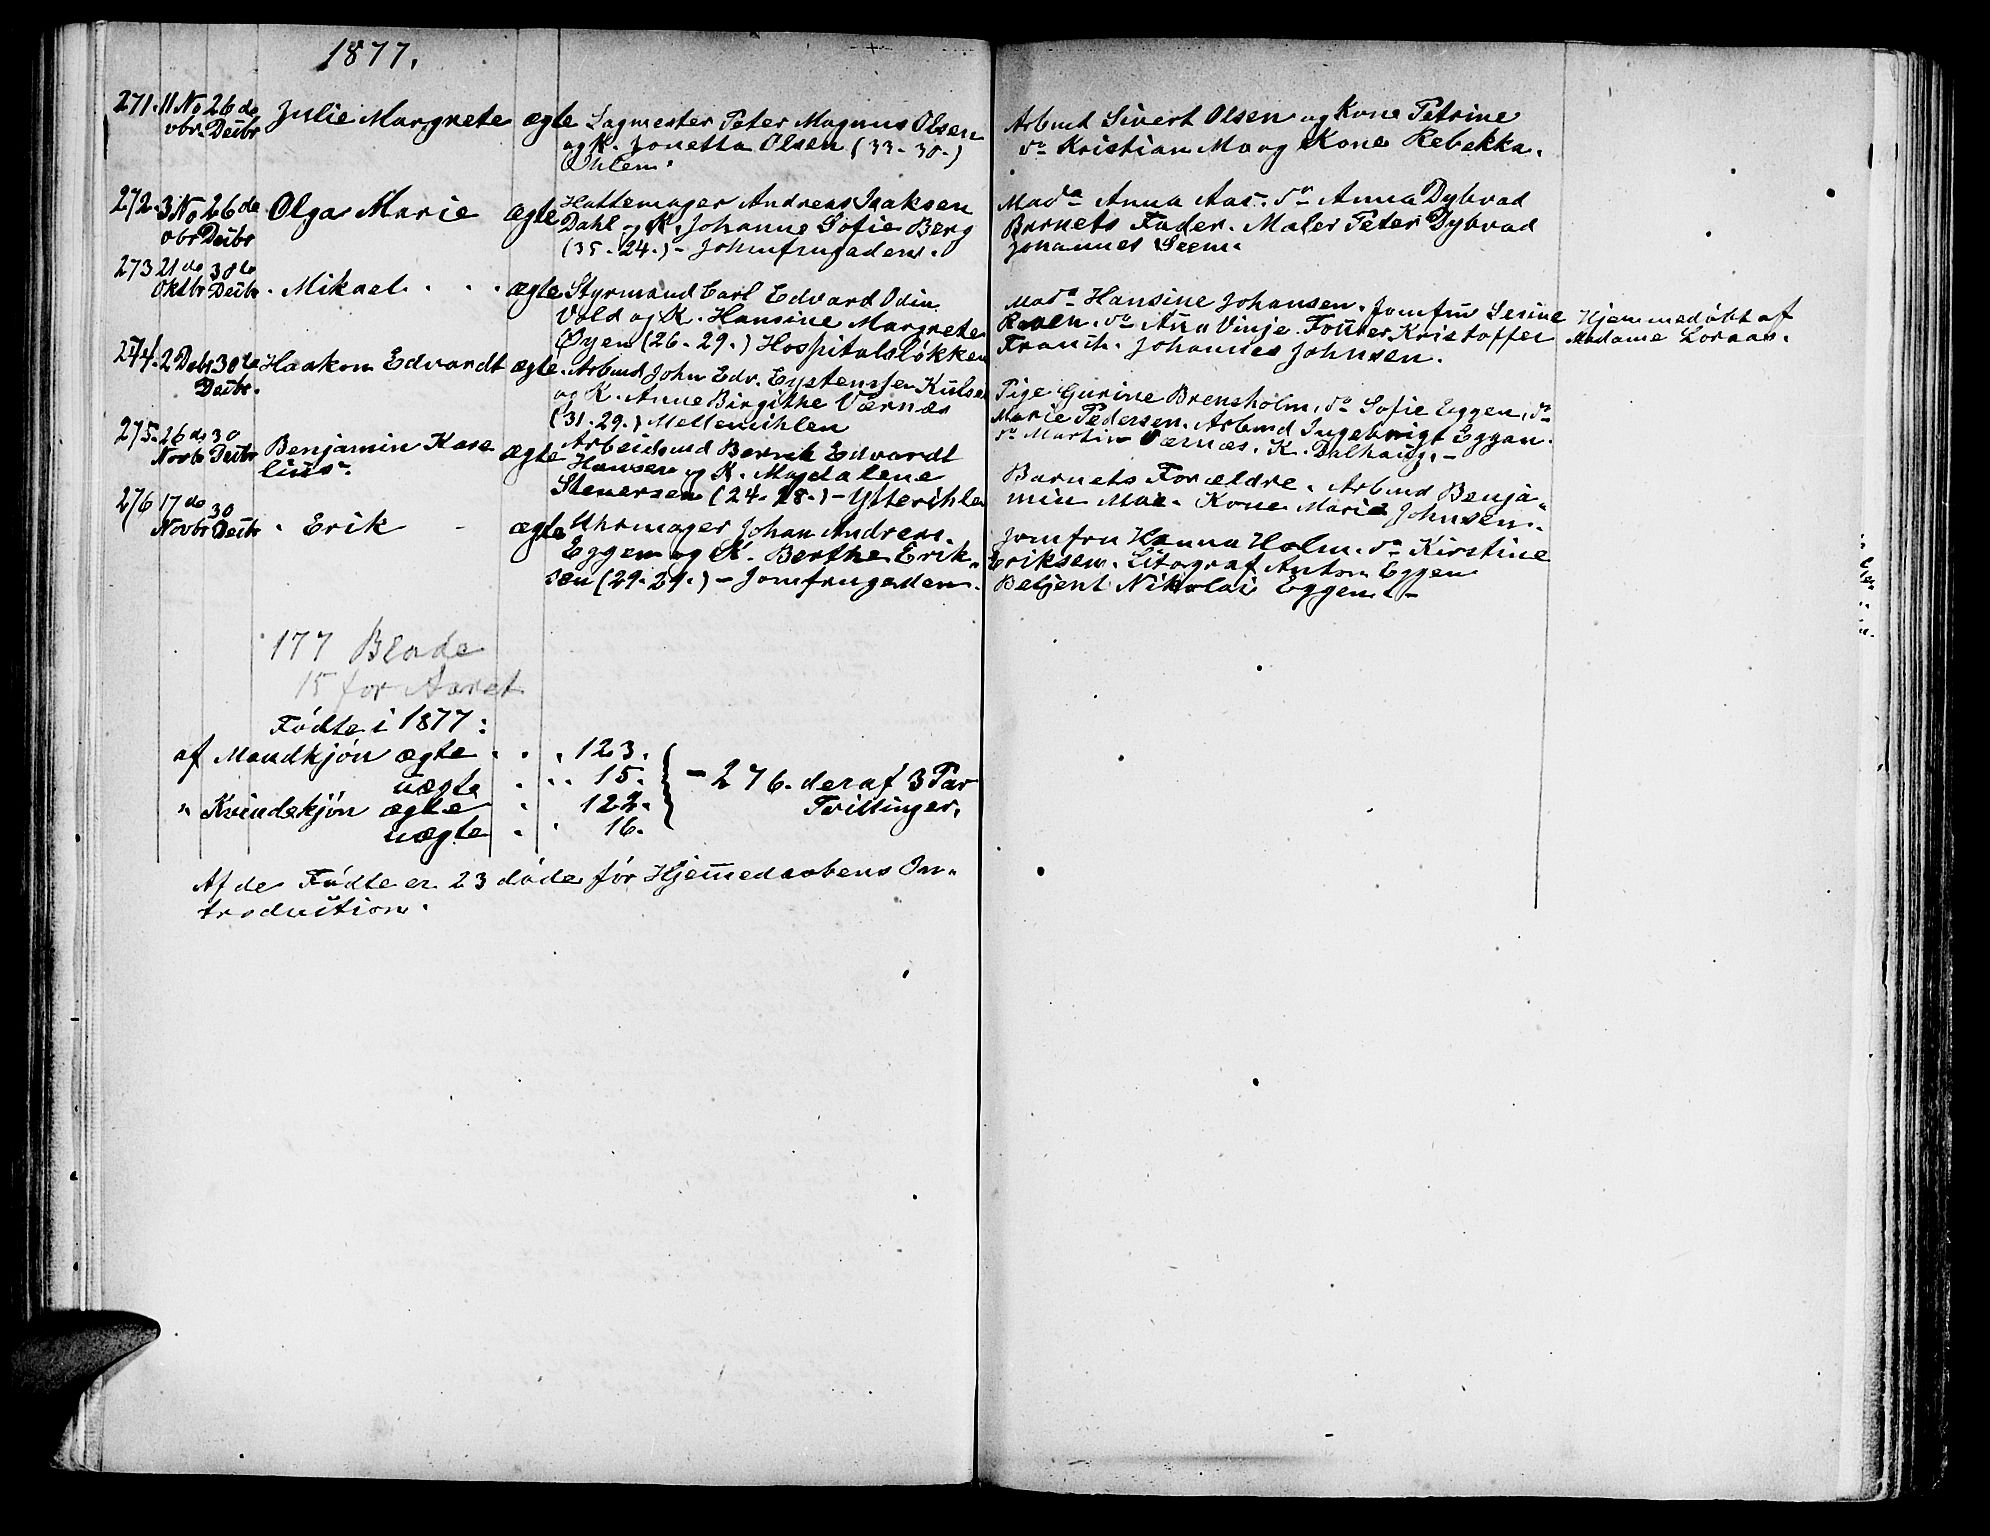 1877.
271. 11 No 26 de Julie Margrete ægte Sagmester Peter Magnus Olsen
vbr. Deibr og K. Jonetta Olsen (33-30-)
Ihlen.
Arbmt Sivert Olsen og Kone Petrine
do Kristian Mo og Kone Rebekka.
272. 3 No 26 de Olga Marie ægte Hattemager Andreas Isaksen
vbr Deibr Dahl og K. Johanne Sofie Berg
(35-24.) - Johmfrugaden.
Made Anna Aas. do Anna Dybvad
Barnets Fader. Maler Peter Dybvad
Johannes Seem.
273 21 de 30te Mikael ægte Styrmand Carl Edvard Odin
Oktbr Deibr Vold og K. Hansine Margrete
Øyen (26-29.) Hospitalsløkken
Made Hansine Johansen. Jomfru Serine
do Anna Vinje. Kristoffer
Johannes Johnsen.
Hjemmedøbt af
Madame Loraas.
274. 2 Debr 30te Haakon Edvardt ægte. Arbmd John Edv. Eystensen
Deibr. og K. Anne Birgithe Værnæs
(31-29.) Mellemihlen
Pige Gurine Brensholm, do Sofie Eggen, do
Marie Pedersen. Arbmd Ingebrigt Eggan.
do Martin Værnæs. K. Dalhaug.-
275. 26 de 30 Benjamin Kase ægte Arbeidsmd Bernt Edvardt
Novbr Deibr lius. Hansen og K. Magdalene
Stenersen (24-28.) - Ytterihlen
Barnets Forældre. Arbmd Benja-
min Moe. Kone Marie Johnsen.
276 17 de 30 Erik ægte Uhrmager Johan Andreas
Novbr Deibr Eggen og K. Berthe Erik-
sen (29-29.) - Jomfrugaden.
Jomfru Hanna Holm. do Kirstine
Eriksen. Litograf Anton Eggen
Betjent Nikolai Eggen.-
177 Blade
15 for Aaret
Fødte i 1877:
af Mandkjøn ægte . . . 123.
uægte . . . 15.
" Kvindekjøn ægte . 122.
uægte . . 16.
- 276. deraf 3 Par
Tvillinger.
Af de Fødte er 23 døde før Hjemmedaabens In-
troduction.